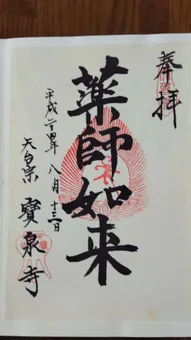 奉拝
薬師如来
平成二十四年八月十三日
天台宗 寳泉寺